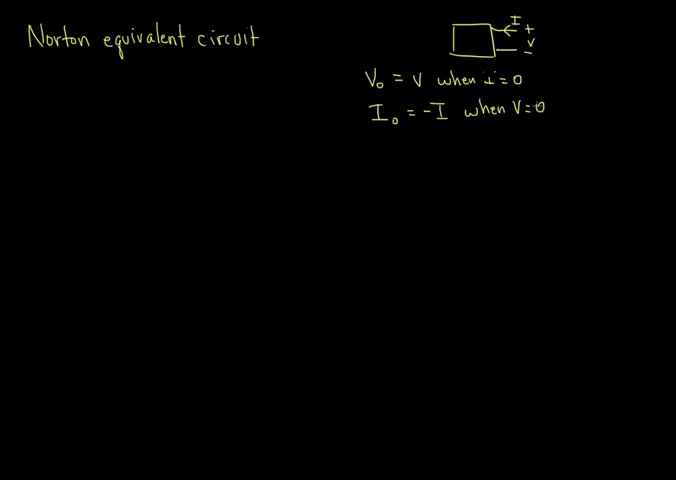 Norton equivalent circuit
I
+
V
-
V₀ = V when i=0
I₀ = -I when V=0